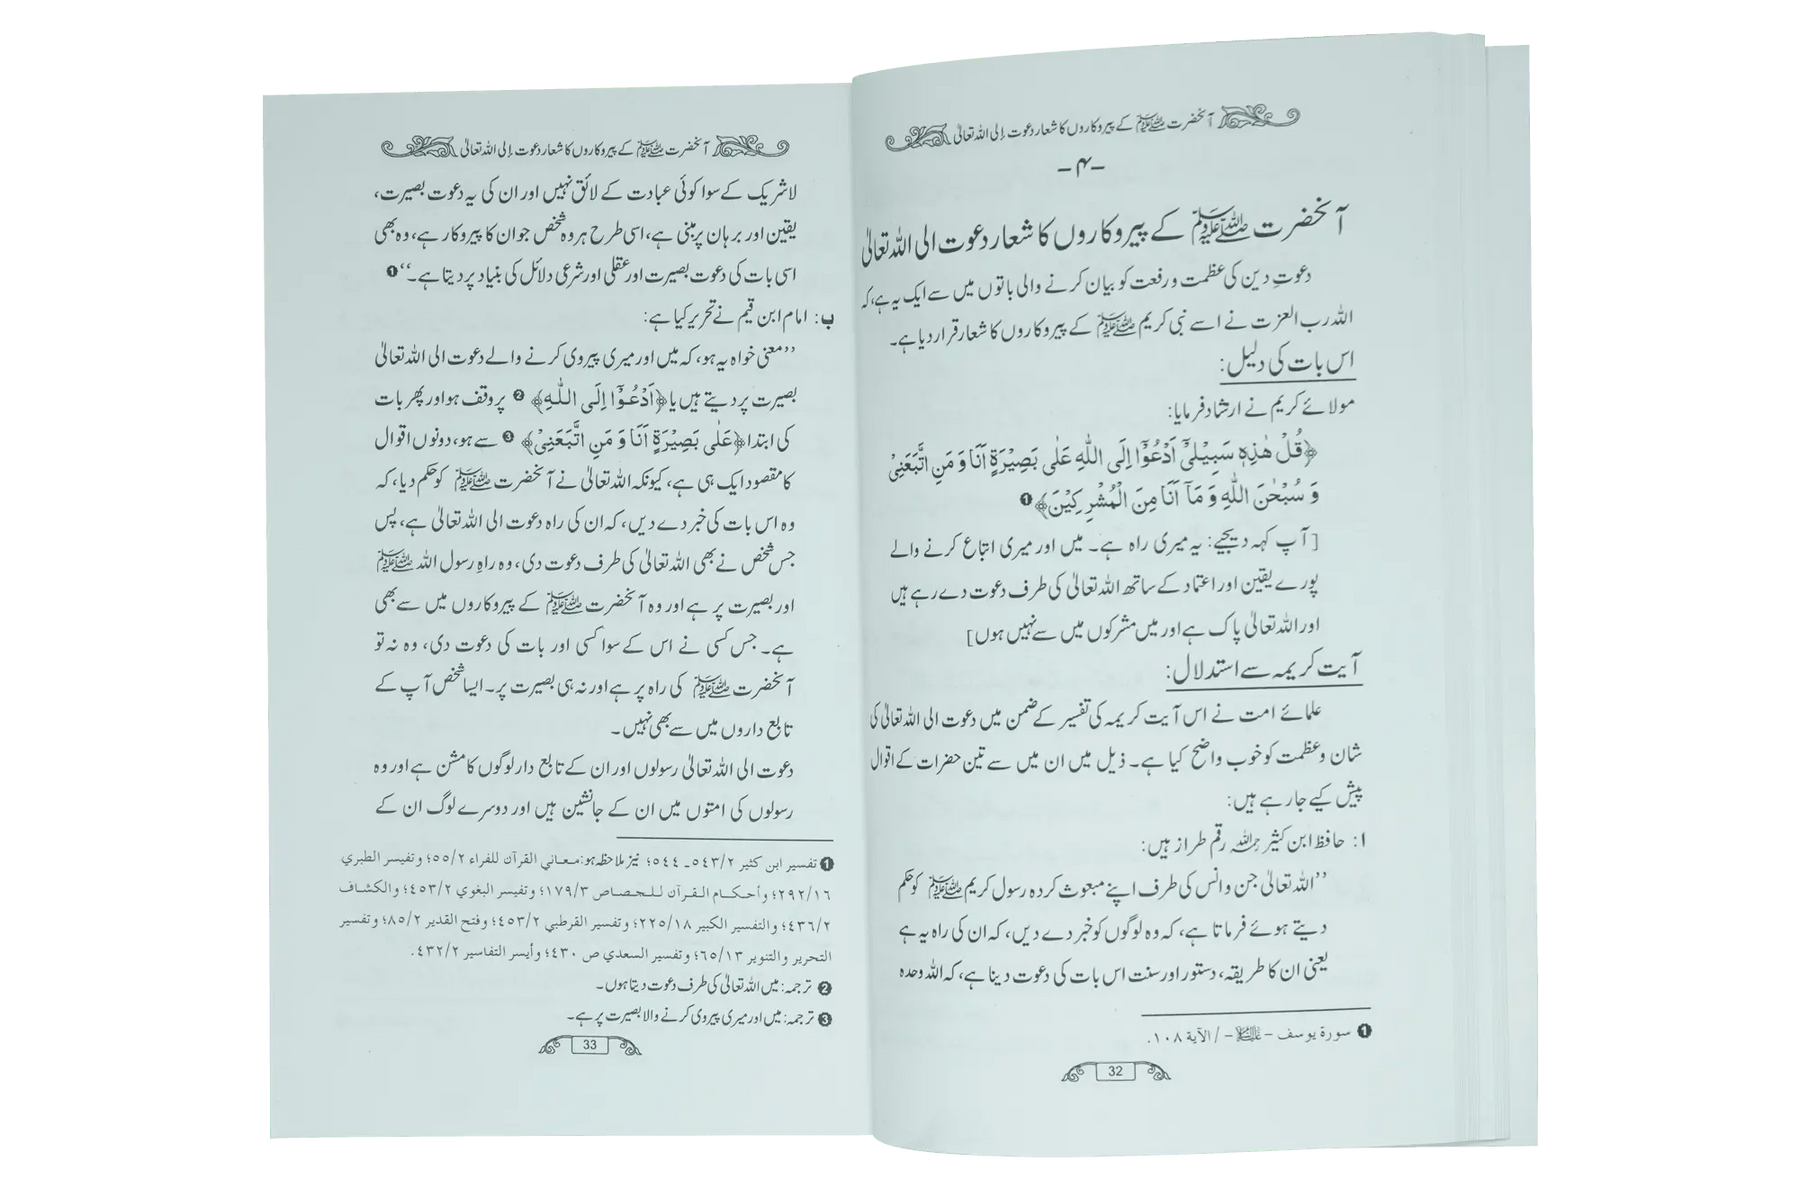 آنحضرت ﷺ کے پیروکاروں کا شعار دعوت إلی اللہ تعالیٰ
-۴-
آنحضرت ﷺ کے پیروکاروں کا شعار دعوت الی اللہ تعالیٰ
دعوتِ دین کی عظمت و رفعت کو بیان کرنے والی باتوں میں سے ایک یہ ہے، کہ
اللہ رب العزت نے اسے نبی کریم ﷺ کے پیروکاروں کا شعار قرار دیا ہے۔
اس بات کی دلیل:
مولائے کریم نے ارشاد فرمایا:
﴿قُلْ هٰذِهٖ سَبِيْلِيْٓ اَدْعُوْٓا اِلَى اللّٰهِ عَلٰى بَصِيْرَةٍ اَنَا وَ مَنِ اتَّبَعَنِيْ
وَ سُبْحٰنَ اللّٰهِ وَ مَآ اَنَا مِنَ الْمُشْرِكِيْنَ﴾❶
[آپ کہہ دیجیے: یہ میری راہ ہے۔ میں اور میری اتباع کرنے والے
پورے یقین اور اعتماد کے ساتھ اللہ تعالیٰ کی طرف دعوت دے رہے ہیں
اور اللہ تعالیٰ پاک ہے اور میں مشرکوں میں سے نہیں ہوں]
آیت کریمہ سے استدلال:
علمائے امت نے اس آیت کریمہ کی تفسیر کے ضمن میں دعوت الی اللہ تعالیٰ کی
شان و عظمت کو خوب واضح کیا ہے۔ ذیل میں ان میں سے تین حضرات کے اقوال
پیش کیے جا رہے ہیں:
ا: حافظ ابن کثیر رحمہ اللہ رقم طراز ہیں:
’’اللہ تعالیٰ جن و انس کی طرف اپنے مبعوث کردہ رسول کریم ﷺ کو حکم
دیتے ہوئے فرماتا ہے، کہ وہ لوگوں کو خبر دے دیں، کہ ان کی راہ یہ ہے
یعنی ان کا طریقہ، دستور اور سنت اس بات کی دعوت دینا ہے، کہ اللہ وحدہ
❶ سورة يوسف - عليه السلام - / الآية ١٠٨.
32
آنحضرت ﷺ کے پیروکاروں کا شعار دعوت إلی اللہ تعالیٰ
لا شریک کے سوا کوئی عبادت کے لائق نہیں اور ان کی یہ دعوت بصیرت،
یقین اور برہان پر مبنی ہے، اسی طرح ہر وہ شخص جو ان کا پیروکار ہے، وہ بھی
اسی بات کی دعوت بصیرت اور عقلی اور شرعی دلائل کی بنیاد پر دیتا ہے۔‘‘❶
ب: امام ابن قیم نے تحریر کیا ہے:
’’معنی خواہ یہ ہو، کہ میں اور میری پیروی کرنے والے دعوت الی اللہ تعالیٰ
بصیرت پر دیتے ہیں یا ﴿اَدْعُوْٓا اِلَى اللّٰهِ﴾ ❷ پر وقف ہو اور پھر بات
کی ابتدا ﴿عَلٰى بَصِيْرَةٍ اَنَا وَ مَنِ اتَّبَعَنِيْ﴾ ❸ سے ہو، دونوں اقوال
کا مقصود ایک ہی ہے، کیونکہ اللہ تعالیٰ نے آنحضرت ﷺ کو حکم دیا، کہ
وہ اس بات کی خبر دے دیں، کہ ان کی راہ دعوت الی اللہ تعالیٰ ہے، پس
جس شخص نے بھی اللہ تعالیٰ کی طرف دعوت دی، وہ راہِ رسول اللہ ﷺ
اور بصیرت پر ہے اور وہ آنحضرت ﷺ کے پیروکاروں میں سے بھی
ہے۔ جس کسی نے اس کے سوا کسی اور بات کی دعوت دی، وہ نہ تو
آنحضرت ﷺ کی راہ پر ہے اور نہ ہی بصیرت پر۔ ایسا شخص آپ کے
تابع داروں میں سے بھی نہیں۔
دعوت الی اللہ تعالیٰ رسولوں اور ان کے تابع دار لوگوں کا مشن ہے اور وہ
رسولوں کی امتوں میں ان کے جانشین ہیں اور دوسرے لوگ ان کے
❶ تفسير ابن كثير ٥٤٣/٢ـ ٥٤٤؛ نیز ملاحظہ ہو: معاني القرآن للفراء ٥٥/٢؛ وتفسير الطبري
٢٩٢/١٦؛ وأحكام القرآن للجصاص ١٧٩/٣؛ وتفسير البغوي ٤٥٣/٢؛ والكشاف
٤٣٦/٢؛ والتفسير الكبير ٢٢٥/١٨؛ وتفسير القرطبي ٤٥٣/٢؛ وفتح القدير ٨٥/٢؛ وتفسير
التحرير والتنوير ٦٥/١٣؛ وتفسير السعدي ص ٤٣٠؛ وأيسر التفاسير ٤٣٢/٢.
❷ ترجمہ: میں اللہ تعالیٰ کی طرف دعوت دیتا ہوں۔
❸ ترجمہ: میں اور میری پیروی کرنے والا بصیرت پر ہے۔
33